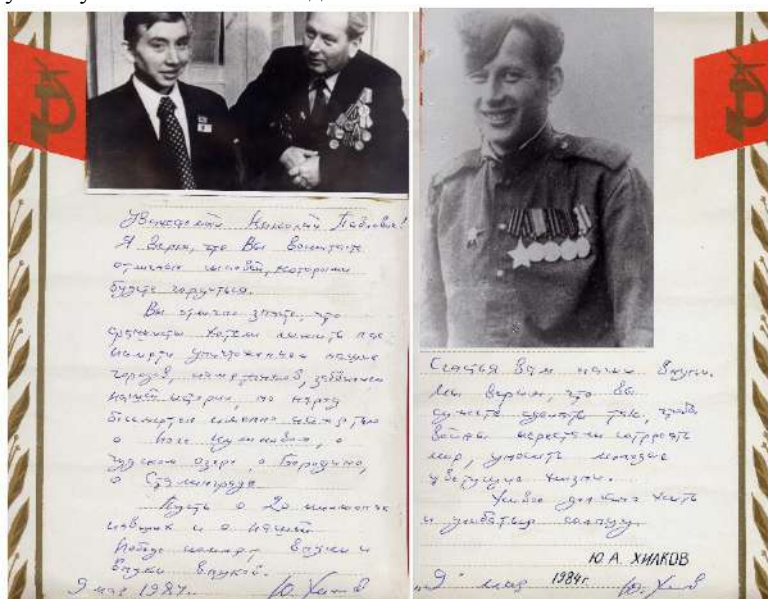 Уважаемый Николай Павлович!
Я верю, что Вы воспитаете
отличных сыновей, которыми
будете гордиться.
Вы отлично знаете, что
фашисты хотели лишить нас
памяти уничтожением наших
городов, памятников, забвением
нашей истории, но народ
бессмертен именно памятью
о поле Куликовом, о
Чудском озере, о Бородино,
о Сталинграде.
Пусть о 20 миллионах
павших и о нашей
Победе помнят внуки и
внуки внуков.
9 мая 1984г.
Счастья Вам наши внуки.
Мы верим, что Вы
сумеете сделать так, чтобы
войны перестали сотрясать
мир, уносить молодые
цветущие жизни.
Живое должно жить
и улыбаться солнцу.
Ю.А. ХИЛКОВ
"9" мая 1984г